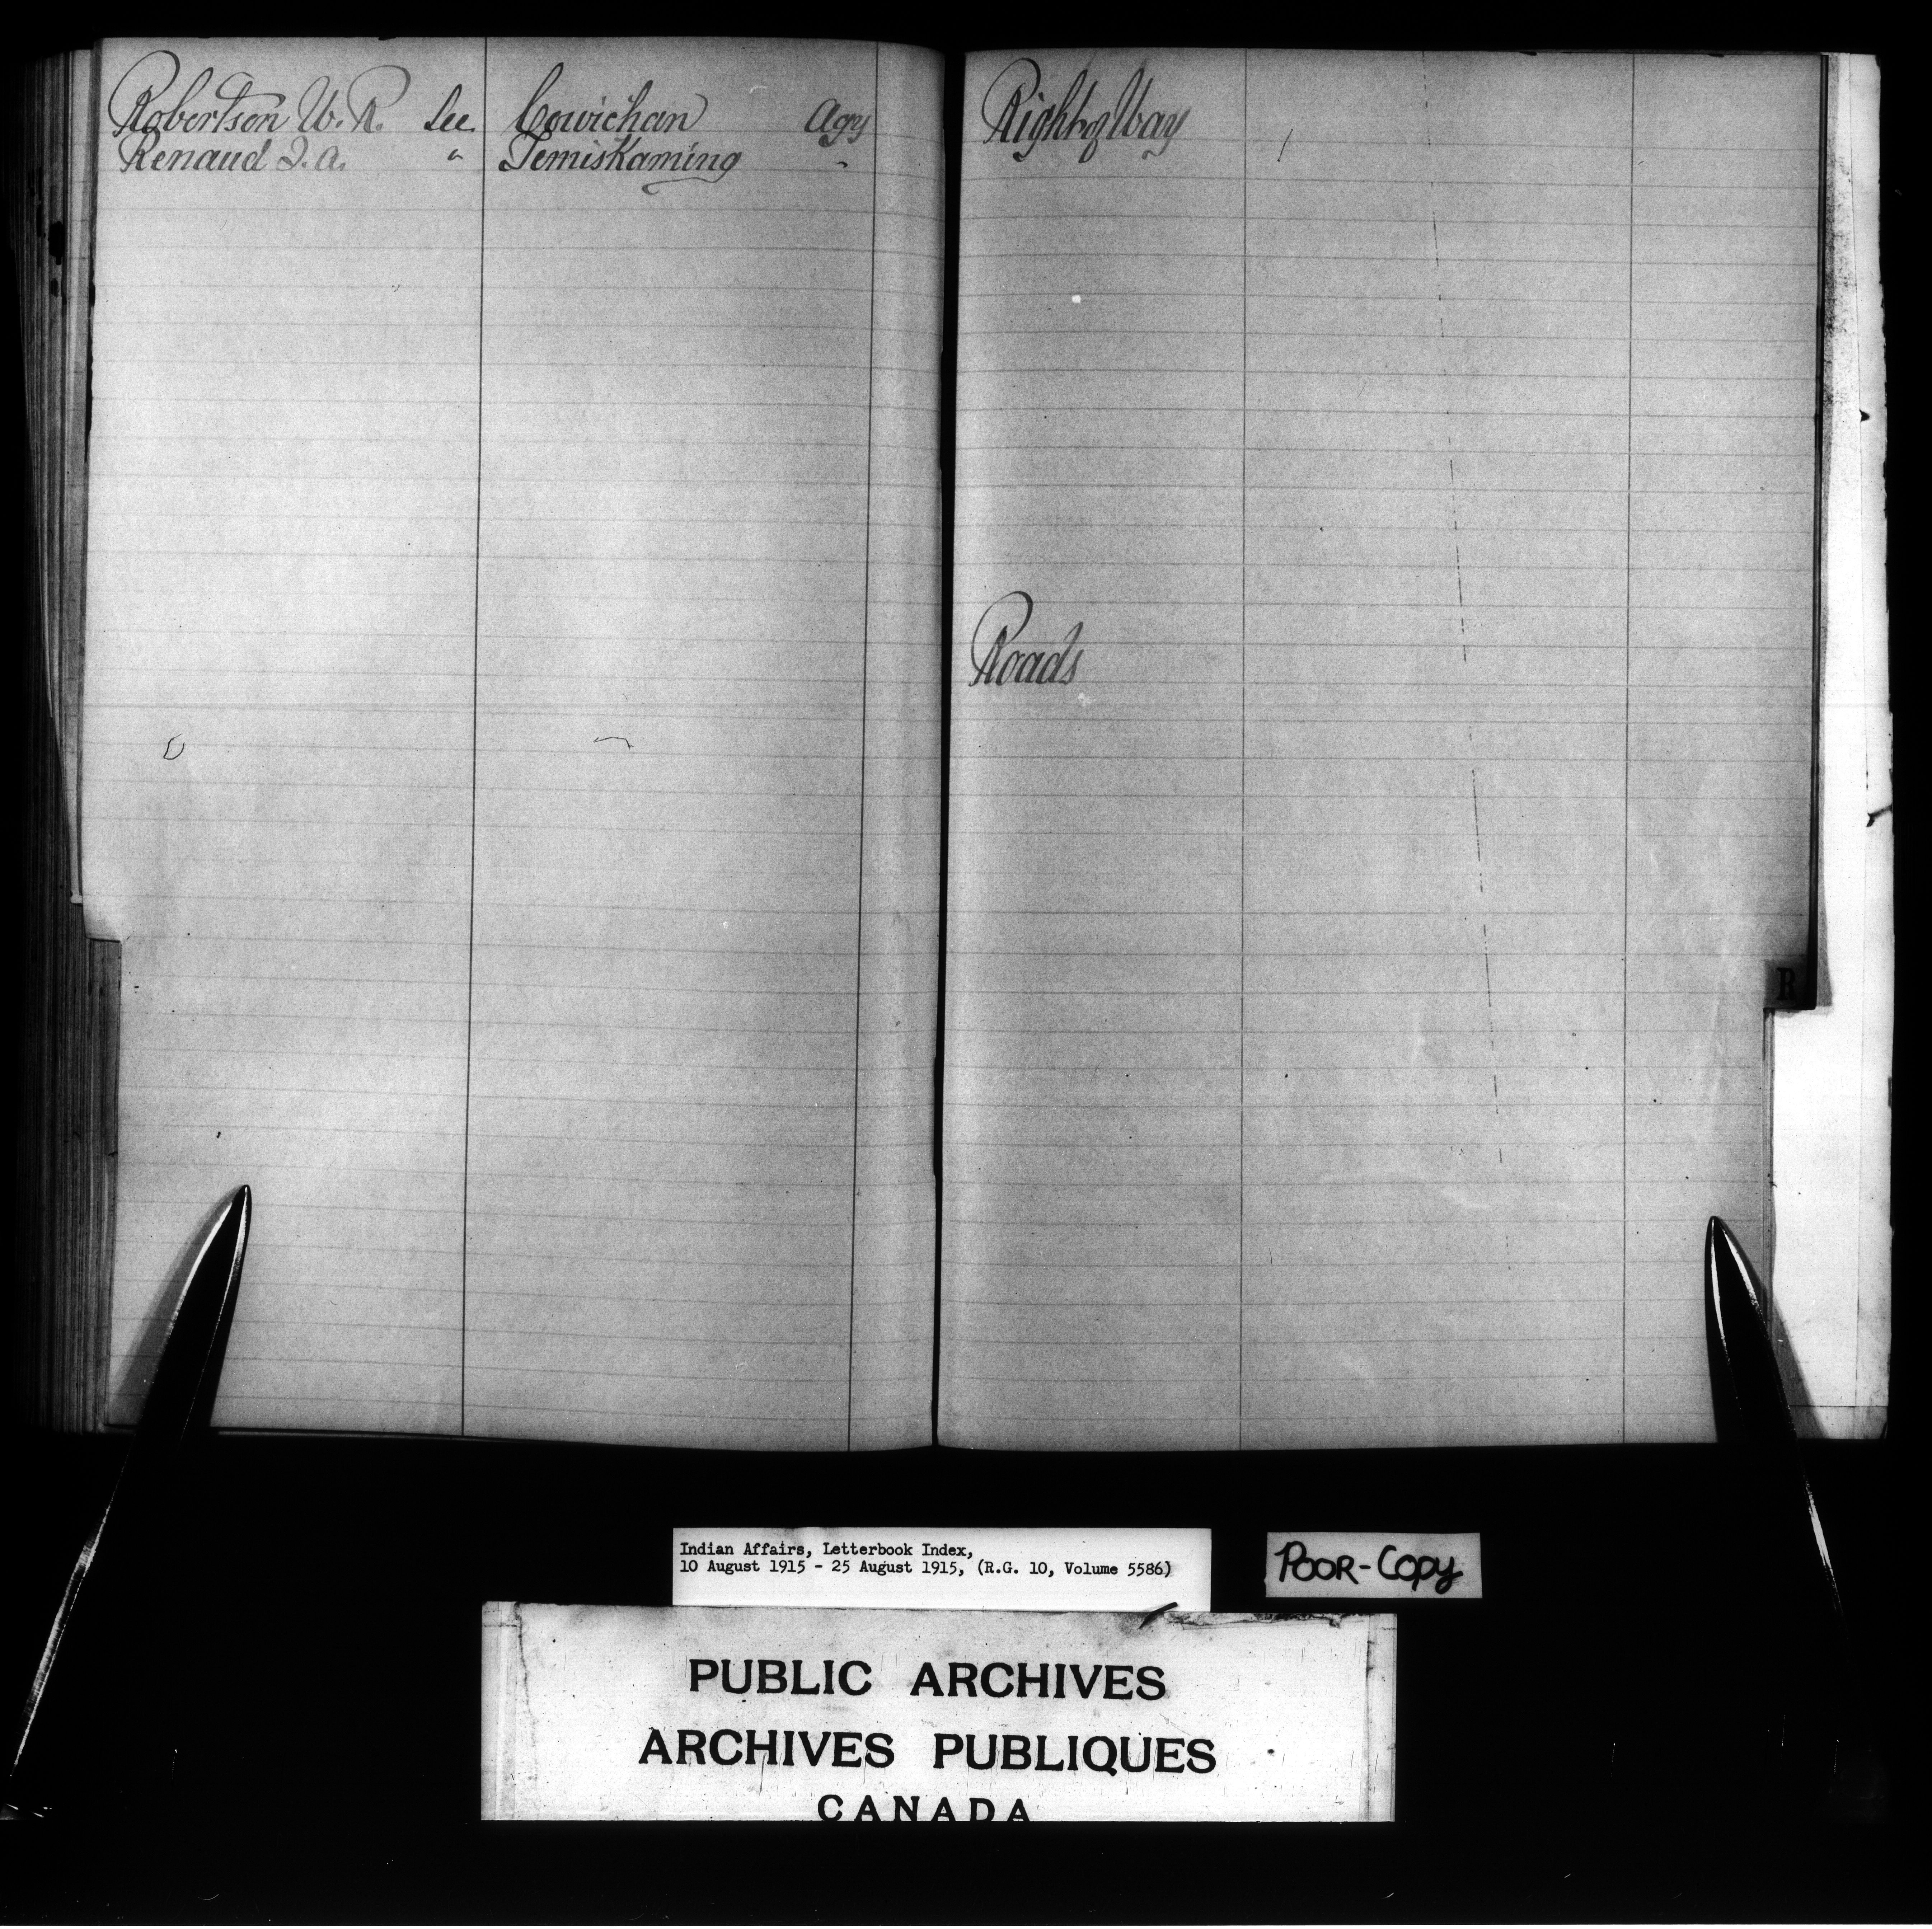 Robertson W. R. See Cowichan Agy
Renaud J. A. " Temiskaming "
Right of Way
Roads
R
Indian Affairs, Letterbook Index,
10 August 1915 - 25 August 1915, (R.G. 10, Volume 5586)
POOR-COPY
PUBLIC ARCHIVES
ARCHIVES PUBLIQUES
CANADA